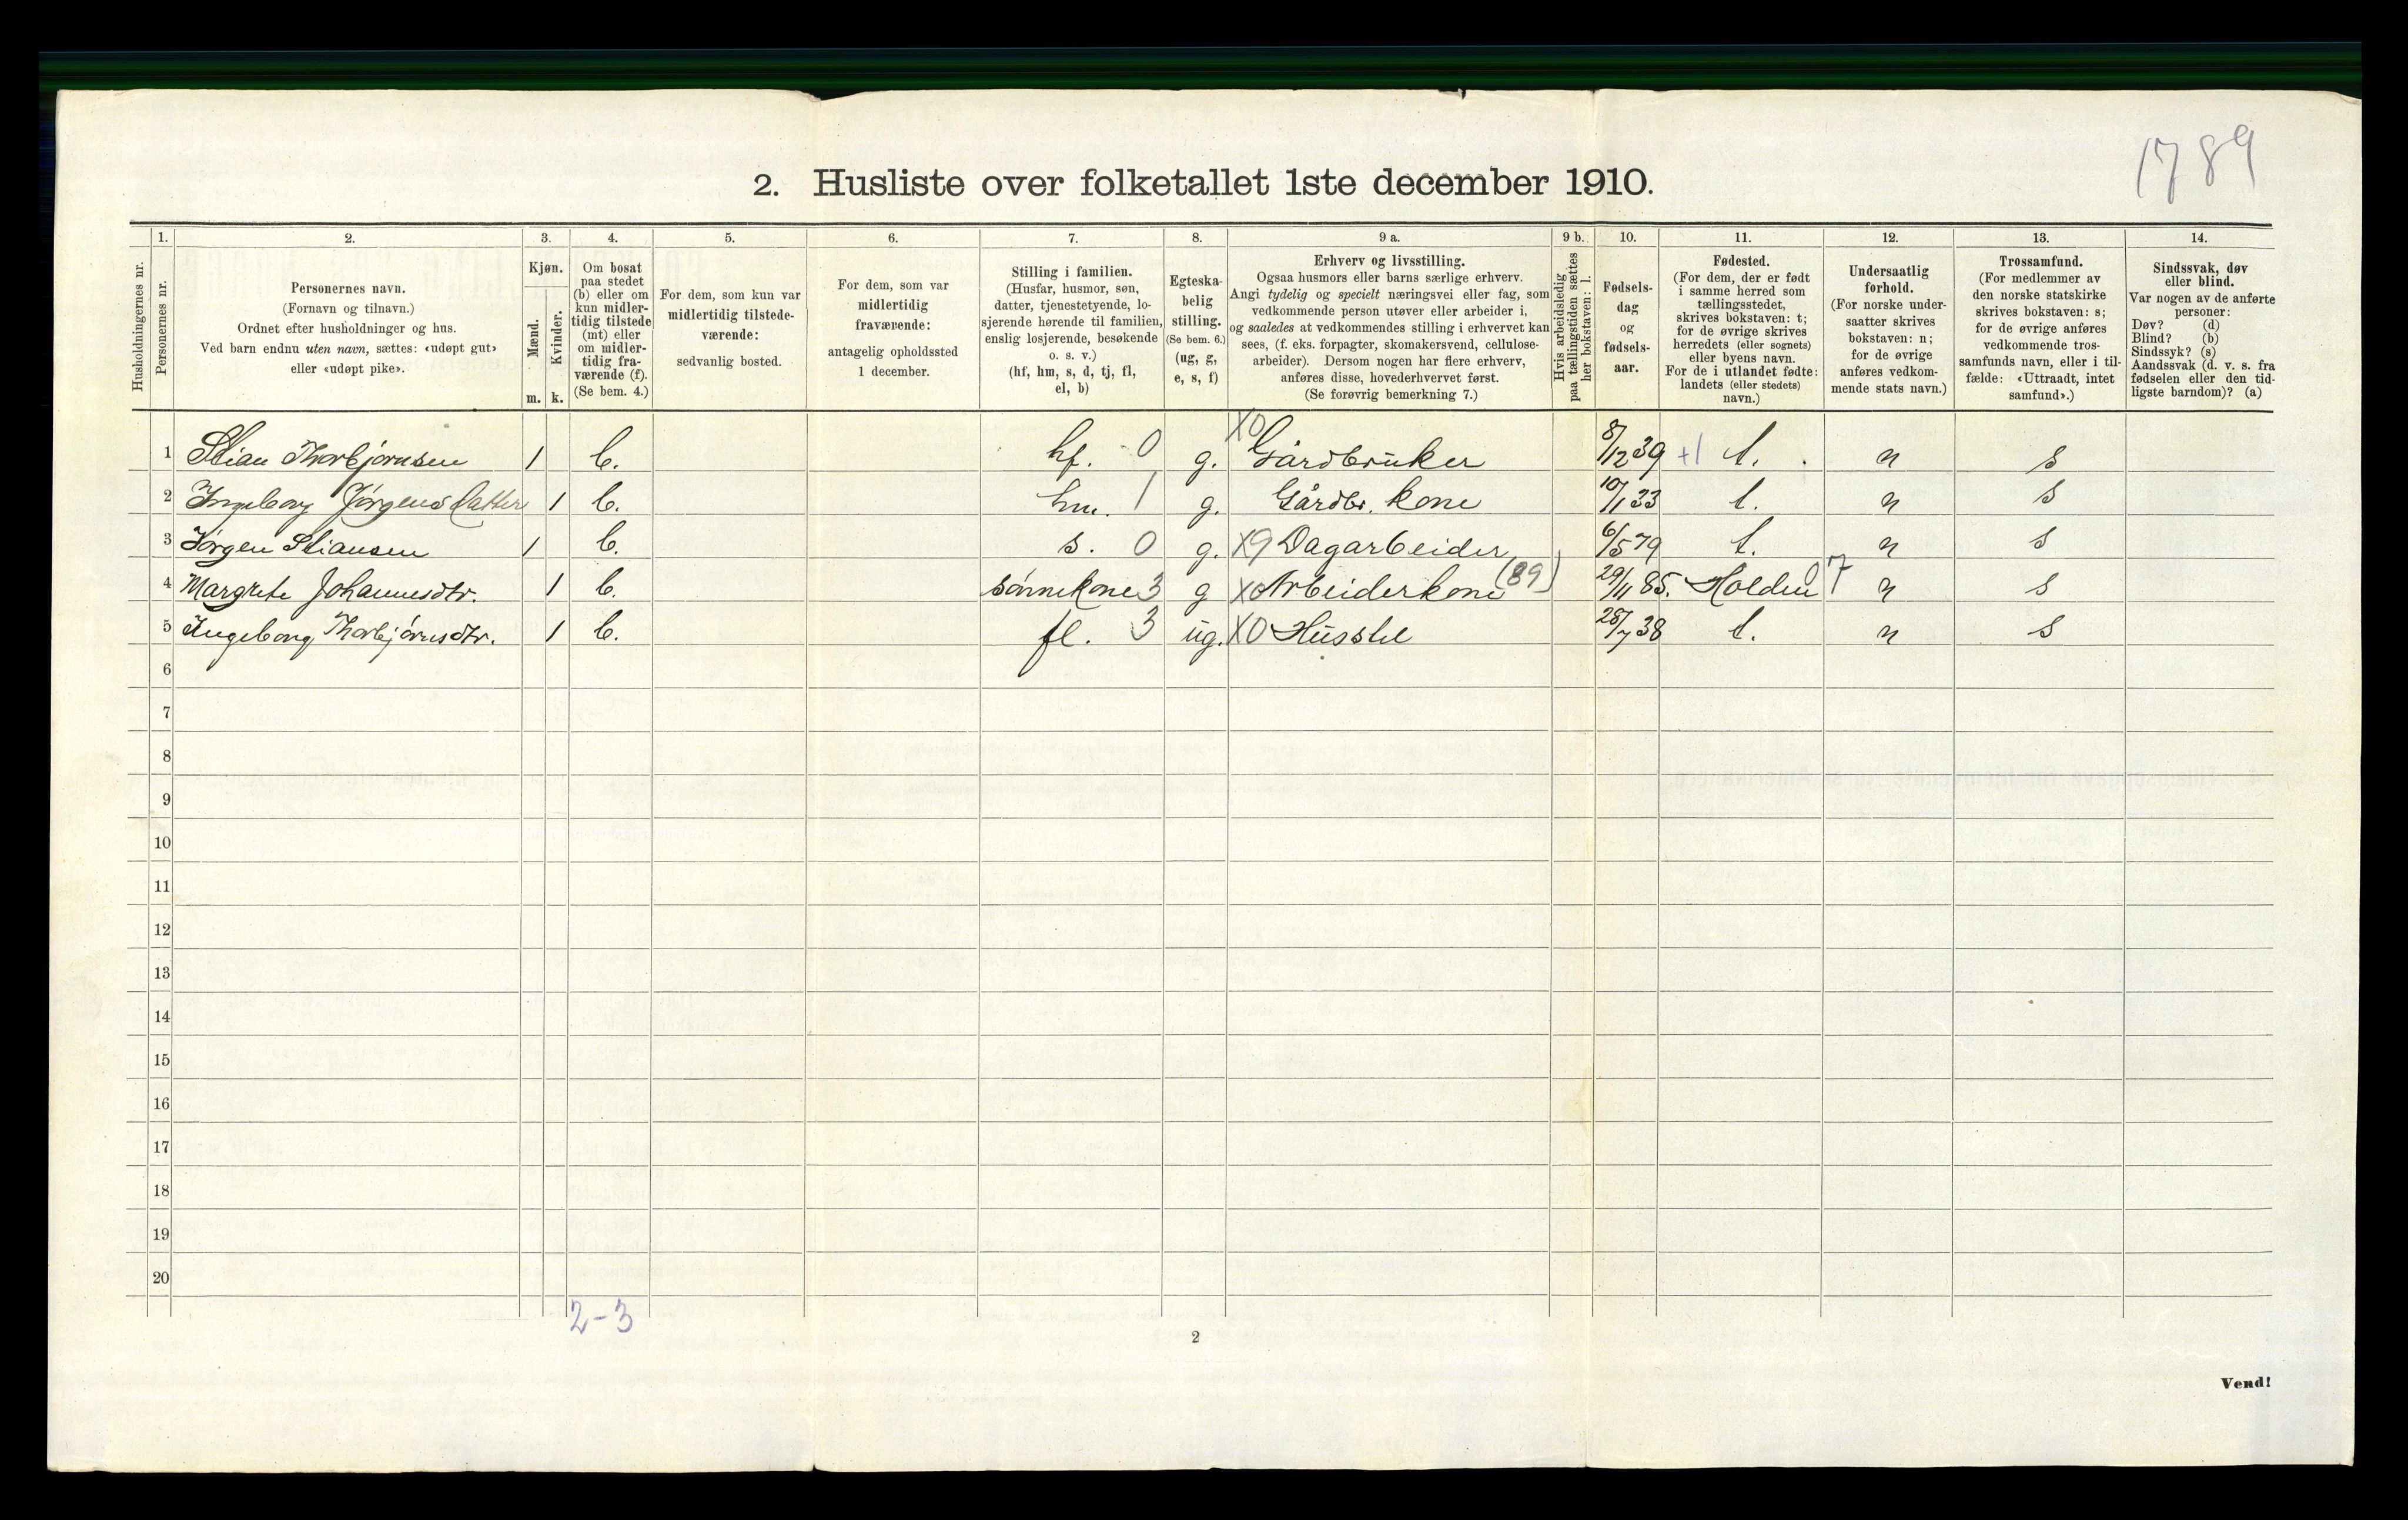 1789
2. Husliste over folketallet 1ste december 1910.
1. 2. 3. 4. 5. 6. 7. 8. 9 a. 9 b. 10. 11. 12. 13. 14.
Husholdningernes nr.
Personernes nr.
Personernes navn.
(Fornavn og tilnavn.)
Ordnet efter husholdninger og hus.
Ved barn endnu uten navn, sættes: «udøpt gut»
eller «udøpt pike».
Kjøn.
Mænd.
Kvinder.
m. k.
Om bosat
paa stedet
(b) eller om
kun midler-
tidig tilstede
(mt) eller
om midler-
tidig fra-
værende (f).
(Se bem. 4.)
For dem, som kun var
midlertidig tilstede-
værende:
sedvanlig bosted.
For dem, som var
midlertidig
fraværende:
antagelig opholdssted
1 december.
Stilling i familien.
(Husfar, husmor, søn,
datter, tjenestetyende, lo-
sjerende hørende til familien,
enslig losjerende, besøkende
o. s. v.)
(hf, hm, s, d, tj, fl,
el, b)
Egteska-
belig
stilling.
(Se bem. 6.)
(ug, g,
e, s, f)
Erhverv og livsstilling.
Ogsaa husmors eller barns særlige erhverv.
Angi tydelig og specielt næringsvei eller fag, som
vedkommende person utøver eller arbeider i,
og saaledes at vedkommendes stilling i erhvervet kan
sees, (f. eks. forpagter, skomakersvend, cellulose-
arbeider). Dersom nogen har flere erhverv,
anføres disse, hovederhvervet først.
(Se forøvrig bemerkning 7.)
Hvis arbeidsledig
paa tællingstiden sættes
her bokstaven: l.
Fødsels-
dag
og
fødsels-
aar.
Fødested.
(For dem, der er født
i samme herred som
tællingsstedet,
skrives bokstaven: t;
for de øvrige skrives
herredets (eller sognets)
eller byens navn.
For de i utlandet fødte:
landets (eller stedets)
navn.)
Undersaatlig
forhold.
(For norske under-
saatter skrives
bokstaven: n;
for de øvrige
anføres vedkom-
mende stats navn.)
Trossamfund.
(For medlemmer av
den norske statskirke
skrives bokstaven: s;
for de øvrige anføres
vedkommende tros-
samfunds navn, eller i til-
fælde: «Uttraadt, intet
samfund».)
Sindssvak, døv
eller blind.
Var nogen av de anførte
personer:
Døv? (d)
Blind? (b)
Sindssyk? (s)
Aandssvak (d. v. s. fra
fødselen eller den tid-
ligste barndom)? (a)
1 Stian Thorbjørnsen 1 b. hf. 0 g. X0 Gårdbruker 8/12 39 +1 t. n s
2 Ingeborg Jørgensdatter 1 b. hm. 1 g. Gårdbr. kone 10/1 33 t. n s
3 Jørgen Stiansen 1 b. s. 0 g. X9 Dagarbeider 6/5 79 t. n s
4 Margrete Johannesdtr. 1 b. sønnekone 3 g X0 Arbeiderkone (89) 29/11 85. Holden 07 n s
5 Ingeborg Thorbjørnsdtr. 1 b. fl. 3 ug. X0 Husstel 28/7 38 t. n s
6
7
8
9
10
11
12
13
14
15
16
17
18
19
20
2-3
2
Vend!